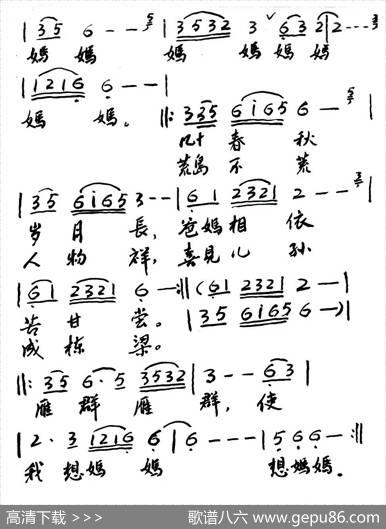 | 35 6 - - | 3532 3 ˅ 632 | 2 - - - |
媽 媽 媽 媽 媽 媽
| 1216 6 - - |
媽 媽。
||: 335 6i65 6 - |
几十 春 秋
荒島 不 荒
| 35 6i65 3 - - | 61 2321 2 - - |
岁 月 長, 爸媽 相 依
人 物 祥, 喜見 儿 孙
| 61 2321 6 - :|| (61 2321 2 - |
苦 甘 尝。 | 35 6165 6 -) |
成 栋 梁。
||: 35 6· 5 3532 | 3 - - 63 |
雁 群 雁 群, 使
| 2· 3 1216 6 | 6 - - - | 566 - :||
我 想媽 媽 想媽媽.
高清下载 >>>
歌谱八六 www.gepu86.com